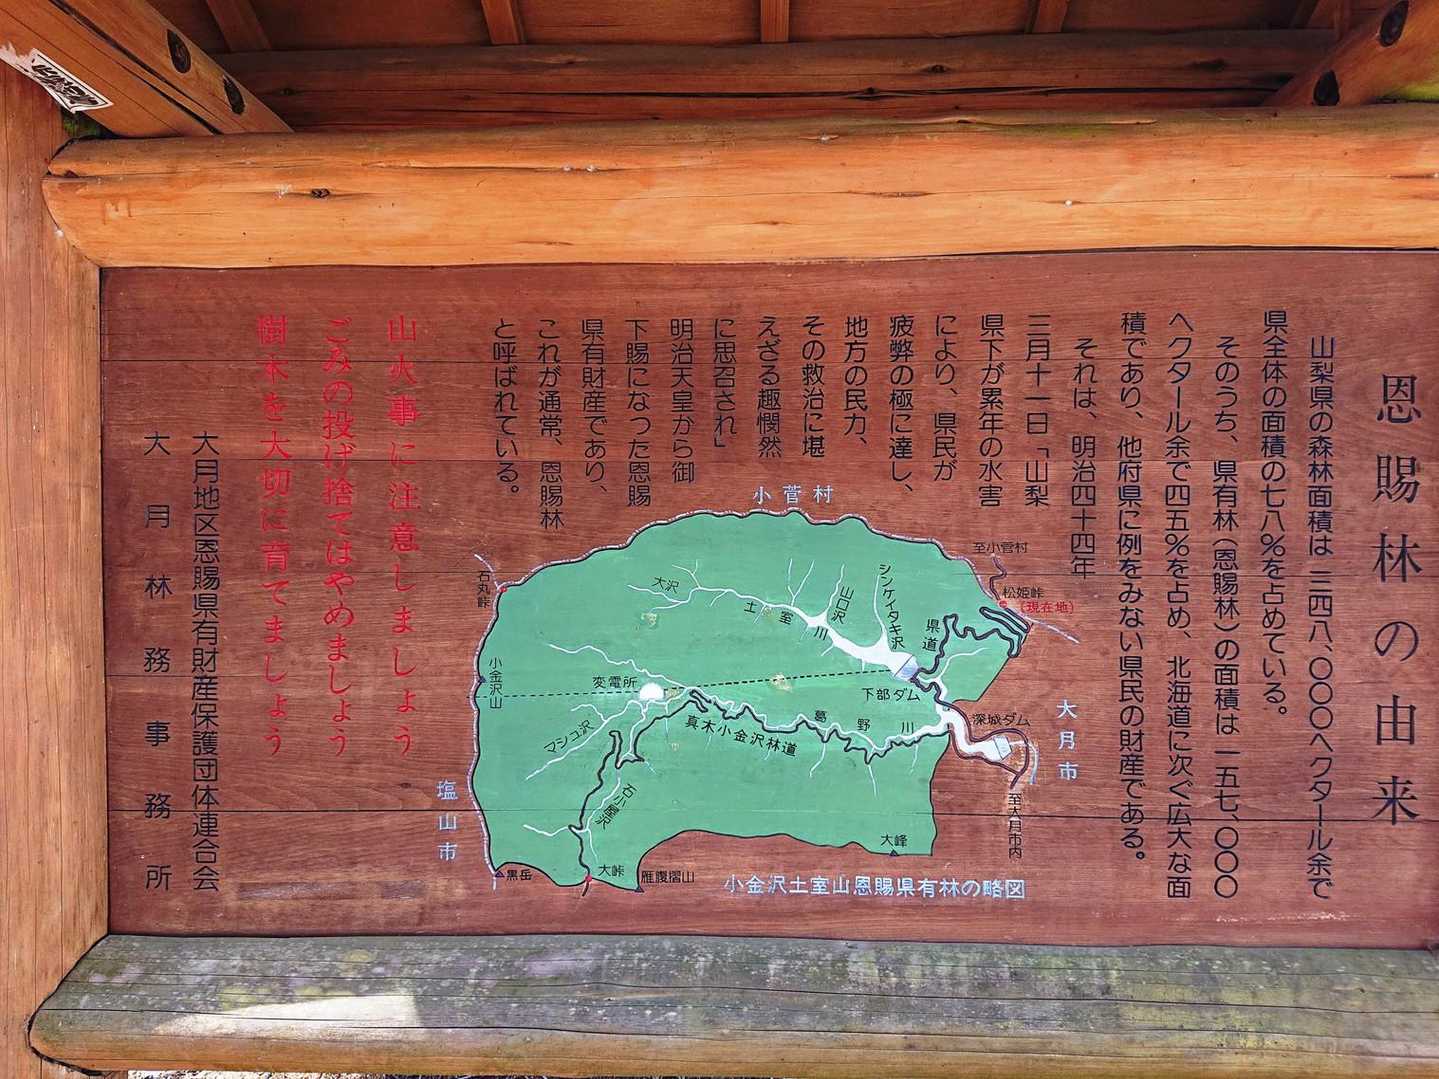 恩賜林の由来
山梨県の森林面積は 三四八、〇〇〇ヘクタール余で
県全体の面積の七八％を占めている。
そのうち、県有林（恩賜林）の面積は 一五七、〇〇〇
ヘクタール余で四五％を占め、北海道に次ぐ広大な面
積であり、他府県に例をみない県民の財産である。
それは、明治四十四年
三月十一日「山梨
県下が累年の水害
により、県民が
疲弊の極に達し、
地方の民力、
その救治に堪
えざる趣憫然
に思召され」
明治天皇から御
下賜になった恩賜
県有財産であり、
これが通常、恩賜林
と呼ばれている。
山火事に注意しましょう
ごみの投げ捨てはやめましょう
樹木を大切に育てましょう
大月地区恩賜県有財産保護団体連合会
大月林務事務所
小菅村
至小菅村
松姫峠
（現在地）
石丸峠
大沢
土室川
山口沢
シンケイタキ沢
県道
小金沢山
変電所
下部ダム
深城ダム
大月市
マシュ沢
真木小金沢林道
葛野川
石小屋沢
塩山市
至大月市内
大峰
黒岳
大峠
雁腹摺山
小金沢土室山恩賜県有林の略図